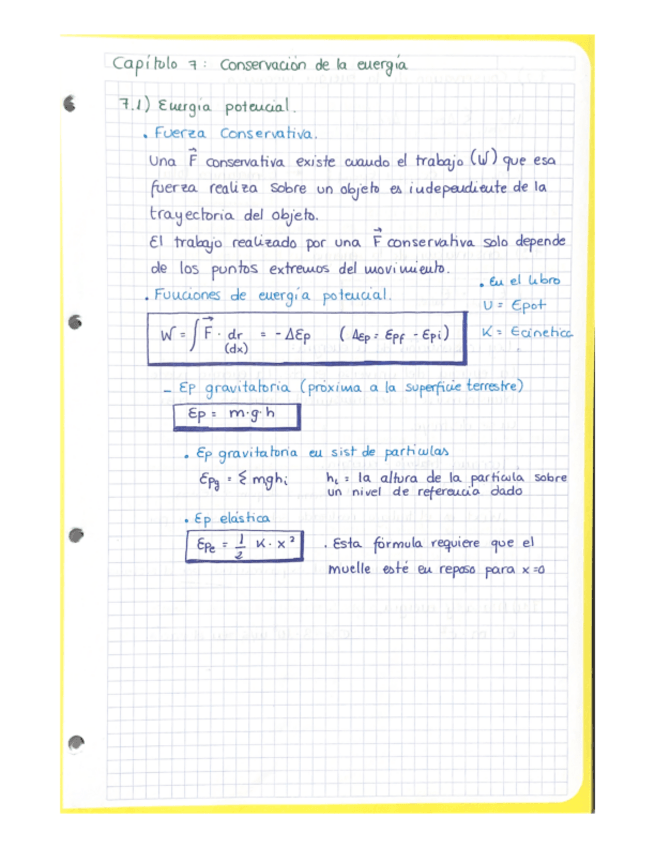 Capítulo 7: Conservación de la energía
7.1) Energía potencial.
. Fuerza Conservativa.
Una F⃗ conservativa existe cuando el trabajo (W) que esa
fuerza realiza sobre un objeto es independiente de la
trayectoria del objeto.
El trabajo realizado por una F⃗ conservativa solo depende
de los puntos extremos del movimiento.
. En el libro
U = Epot
K = Ecinética
. Funciones de energía potencial.
W = ∫ F⃗ · dr = - ΔEp ( ΔEp = Epf - Epi)
(dx)
- Ep gravitatoria (próxima a la superficie terrestre)
Ep = m·g·h
. Ep gravitatoria en sist de partículas
Epg = Σ mghi hi = la altura de la partícula sobre
un nivel de referencia dado
. Ep elástica
Epe = 1/2 K · x² . Esta fórmula requiere que el
muelle esté en reposo para x=0